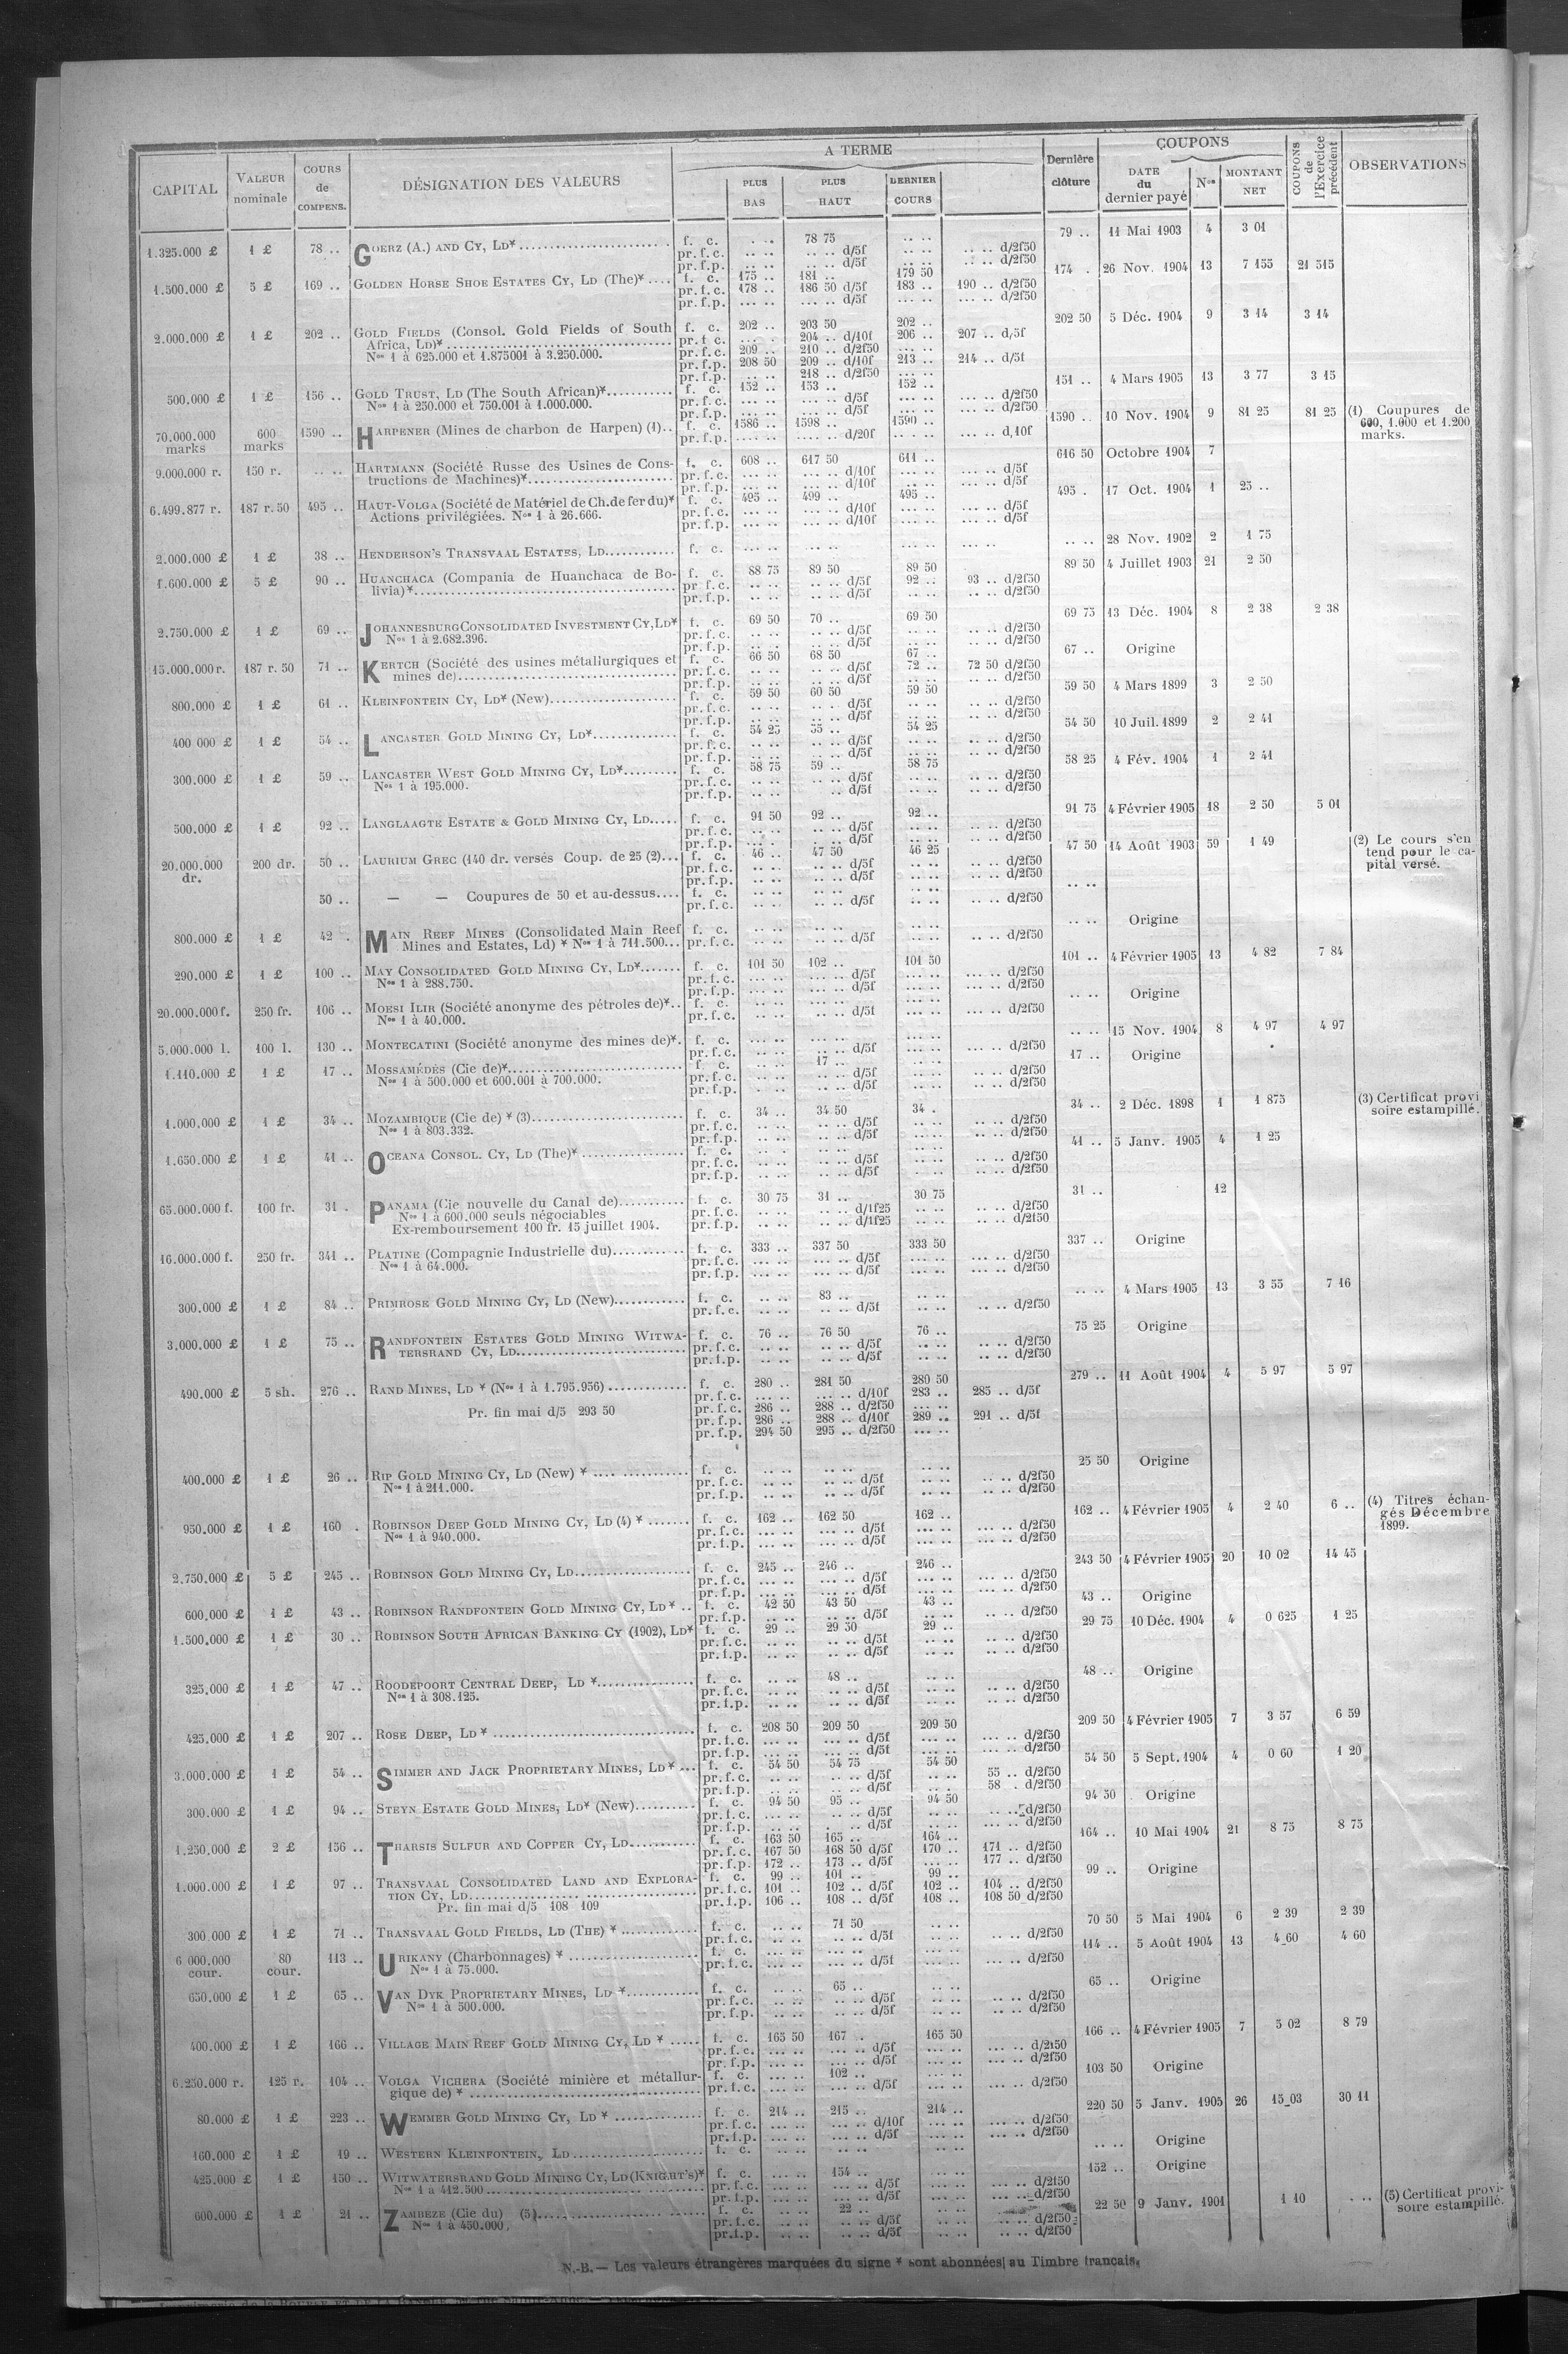 CAPITAL | VALEUR nominale | COURS de COMPENS. | DÉSIGNATION DES VALEURS | A TERME | PLUS BAS | PLUS HAUT | DERNIER COURS | Dernière clôture | COUPONS | DATE du dernier payé | Nos | MONTANT NET | COUPONS de l'Exercice précédent | OBSERVATIONS
1.325.000 £ 1 £ 78 .. GOERZ (A.) AND CY, LD* f. c. 78 75 79 .. 11 Mai 1903 4 3 01
pr. f. c. d/5f d/2f50
pr. f. p. d/5f d/2f50
1.500.000 £ 5 £ 169 .. GOLDEN HORSE SHOE ESTATES CY, LD (The)* f. c. 175 .. 181 .. 179 50 174 . 26 Nov. 1904 13 7 155 21 515
pr. f. c. 178 .. 186 50 d/5f 183 .. 190 .. d/2f50
pr. f. p. d/5f d/2f50
2.000.000 £ 1 £ 202 .. GOLD FIELDS (Consol. Gold Fields of South f. c. 202 .. 203 50 202 .. 202 50 5 Déc. 1904 9 3 14 3 14
Africa, LD)* pr. f. c. 204 .. d/10f 206 .. 207 .. d/5f
Nos 1 à 625.000 et 1.875001 à 3.250.000. pr. f. c. 209 .. 210 .. d/2f50
pr. f. p. 208 50 209 .. d/10f 213 .. 214 .. d/5f
pr. f. p. 218 .. d/2f50
500.000 £ 1 £ 156 .. GOLD TRUST, LD (The South African)* f. c. 152 .. 153 .. 152 .. 151 .. 4 Mars 1905 13 3 77 3 15
Nos 1 à 250.000 et 750.001 à 1.000.000. pr. f. c. d/5f d/2f50
pr. f. p. d/5f d/2f50
70.000.000 marks 600 marks 1590 .. HARPENER (Mines de charbon de Harpen) (1) f. c. 1586 .. 1598 .. 1590 .. 1590 .. 10 Nov. 1904 9 81 25 81 25 (1) Coupures de 600, 1.000 et 1.200 marks.
pr. f. p. d/20f d/10f
9.000.000 r. 150 r. .. .. HARTMANN (Société Russe des Usines de Cons- f. c. 608 .. 617 50 611 .. 616 50 Octobre 1904 7
tructions de Machines)* pr. f. c. d/10f d/5f
pr. f. p. d/10f d/5f
6.499.877 r. 187 r. 50 495 .. HAUT-VOLGA (Société de Matériel de Ch. de fer du)* f. c. 495 .. 499 .. 495 .. 495 . 17 Oct. 1904 1 25 ..
Actions privilégiées. Nos 1 à 26.666. pr. f. c. d/10f d/5f
pr. f. p. d/10f d/5f
2.000.000 £ 1 £ 38 .. HENDERSON'S TRANSVAAL ESTATES, LD f. c. .. .. 28 Nov. 1902 2 1 75
1.600.000 £ 5 £ 90 .. HUANCHACA (Compania de Huanchaca de Bo- f. c. 88 75 89 50 89 50 89 50 4 Juillet 1903 21 2 50
livia)* pr. f. c. d/5f 92 .. 93 .. d/2f50
pr. f. p. d/5f d/2f50
2.750.000 £ 1 £ 69 .. JOHANNESBURG CONSOLIDATED INVESTMENT CY, LD* f. c. 69 50 70 .. 69 50 69 75 13 Déc. 1904 8 2 38 2 38
Nos 1 à 2.682.396. pr. f. c. d/5f d/2f50
pr. f. p. d/5f d/2f50
15.000.000 r. 187 r. 50 71 .. KERTCH (Société des usines métallurgiques et f. c. 66 50 68 50 67 .. 67 .. Origine
mines de) pr. f. c. d/5f 72 .. 72 50 d/2f50
pr. f. p. d/5f d/2f50
800.000 £ 1 £ 61 .. KLEINFONTEIN CY, LD* (New) f. c. 59 50 60 50 59 50 59 50 4 Mars 1899 3 2 50
pr. f. c. d/5f d/2f50
pr. f. p. d/5f d/2f50
400 000 £ 1 £ 54 .. LANCASTER GOLD MINING CY, LD* f. c. 54 25 55 .. 54 25 54 50 10 Juil. 1899 2 2 41
pr. f. c. d/5f d/2f50
pr. f. p. d/5f d/2f50
300.000 £ 1 £ 59 .. LANCASTER WEST GOLD MINING CY, LD* f. c. 58 75 59 .. 58 75 58 25 4 Fév. 1904 1 2 41
Nos 1 à 195.000. pr. f. c. d/5f d/2f50
pr. f. p. d/5f d/2f50
500.000 £ 1 £ 92 .. LANGLAAGTE ESTATE & GOLD MINING CY, LD f. c. 91 50 92 .. 92 .. 91 75 4 Février 1905 18 2 50 5 01
pr. f. c. d/5f d/2f50
pr. f. p. d/5f d/2f50
20.000.000 dr. 200 dr. 50 .. LAURIUM GREC (140 dr. versés Coup. de 25 (2) f. c. 46 .. 47 50 46 25 47 50 14 Août 1903 59 1 49 (2) Le cours s'en tend pour le ca- pital versé.
pr. f. c. d/5f d/2f50
pr. f. p. d/5f d/2f50
50 .. — — Coupures de 50 et au-dessus f. c. .. ..
pr. f. c. d/5f d/2f50
800.000 £ 1 £ 42 . MAIN REEF MINES (Consolidated Main Reef f. c. .. .. Origine
Mines and Estates, Ld) * Nos 1 à 711.500 pr. f. c. d/5f d/2f50
290.000 £ 1 £ 100 .. MAY CONSOLIDATED GOLD MINING CY, LD* f. c. 101 50 102 .. 101 50 101 .. 4 Février 1905 13 4 82 7 84
Nos 1 à 288.750. pr. f. c. d/5f d/2f50
pr. f. p. d/5f d/2f50
20.000.000 f. 250 fr. 106 .. MOESI ILIR (Société anonyme des pétroles de)* f. c. .. .. Origine
Nos 1 à 40.000. pr. f. c. d/5f d/2f50
5.000.000 l. 100 l. 130 .. MONTECATINI (Société anonyme des mines de)* f. c. .. .. 15 Nov. 1904 8 4 97 4 97
pr. f. c. d/5f d/2f50
1.110.000 £ 1 £ 17 .. MOSSAMÉDÈS (Cie de)* f. c. 17 .. 17 .. Origine
Nos 1 à 500.000 et 600.001 à 700.000. pr. f. c. d/5f d/2f50
pr. f. p. d/5f d/2f50
1.000.000 £ 1 £ 34 .. MOZAMBIQUE (Cie de) * (3) f. c. 34 .. 34 50 34 . 34 .. 2 Déc. 1898 1 1 875 (3) Certificat provi soire estampillé.
Nos 1 à 803.332. pr. f. c. d/5f d/2f50
pr. f. p. d/5f d/2f50
1.650.000 £ 1 £ 41 .. OCEANA CONSOL. CY, LD (The)* f. c. 41 .. 5 Janv. 1905 4 1 25
pr. f. c. d/5f d/2f50
pr. f. p. d/5f d/2f50
65.000.000 f. 100 fr. 31 . PANAMA (Cie nouvelle du Canal de) f. c. 30 75 31 .. 30 75 31 .. 12
Nos 1 à 600.000 seuls négociables pr. f. c. d/1f25 d/2f50
Ex-remboursement 100 fr. 15 juillet 1904. pr. f. p. d/1f25 d/2f50
16.000.000 f. 250 fr. 341 .. PLATINE (Compagnie Industrielle du) f. c. 333 .. 337 50 333 50 337 .. Origine
Nos 1 à 64.000. pr. f. c. d/5f d/2f50
pr. f. p. d/5f d/2f50
300.000 £ 1 £ 84 .. PRIMROSE GOLD MINING CY, LD (New) f. c. 83 .. .. .. 4 Mars 1905 13 3 55 7 16
pr. f. c. d/5f d/2f50
3.000.000 £ 1 £ 75 .. RANDFONTEIN ESTATES GOLD MINING WITWA- f. c. 76 .. 76 50 76 .. 75 25 Origine
TERSRAND CY, LD pr. f. c. d/5f d/2f50
pr. f. p. d/5f d/2f50
490.000 £ 5 sh. 276 .. RAND MINES, LD * (Nos 1 à 1.795.956) f. c. 280 .. 281 50 280 50 279 .. 11 Août 1904 4 5 97 5 97
pr. f. c. d/10f 283 .. 285 .. d/5f
Pr. fin mai d/5 293 50 pr. f. c. 286 .. 288 .. d/2f50
pr. f. p. 286 .. 288 .. d/10f 289 .. 291 .. d/5f
pr. f. p. 294 50 295 .. d/2f50
400.000 £ 1 £ 26 .. RIP GOLD MINING CY, LD (New) * f. c. 25 50 Origine
Nos 1 à 211.000. pr. f. c. d/5f d/2f50
pr. f. p. d/5f d/2f50
950.000 £ 1 £ 160 . ROBINSON DEEP GOLD MINING CY, LD (4) * f. c. 162 .. 162 50 162 .. 162 .. 4 Février 1905 4 2 40 6 .. (4) Titres échan- gés Décembre 1899.
Nos 1 à 940.000. pr. f. c. d/5f d/2f50
pr. f. p. d/5f d/2f50
2.750.000 £ 5 £ 245 .. ROBINSON GOLD MINING CY, LD f. c. 245 .. 246 .. 246 .. 243 50 4 Février 1905 20 10 02 14 45
pr. f. c. d/5f d/2f50
pr. f. p. d/5f d/2f50
600.000 £ 1 £ 43 .. ROBINSON RANDFONTEIN GOLD MINING CY, LD * f. c. 42 50 43 50 43 .. 43 .. Origine
pr. f. p. d/5f d/2f50
1.500.000 £ 1 £ 30 .. ROBINSON SOUTH AFRICAN BANKING CY (1902), LD* f. c. 29 .. 29 50 29 .. 29 75 10 Déc. 1904 4 0 625 1 25
pr. f. c. d/5f d/2f50
pr. f. p. d/5f d/2f50
325.000 £ 1 £ 47 .. ROODEPOORT CENTRAL DEEP, LD * f. c. 48 .. 48 .. Origine
Nos 1 à 308.125. pr. f. c. d/5f d/2f50
pr. f. p. d/5f d/2f50
425.000 £ 1 £ 207 .. ROSE DEEP, LD * f. c. 208 50 209 50 209 50 209 50 4 Février 1905 7 3 57 6 59
pr. f. c. d/5f d/2f50
pr. f. p. d/5f d/2f50
3.000.000 £ 1 £ 54 .. SIMMER AND JACK PROPRIETARY MINES, LD * f. c. 54 50 54 75 54 50 54 50 5 Sept. 1904 4 0 60 1 20
pr. f. c. d/5f 55 .. d/2f50
pr. f. p. d/5f 58 . d/2f50
300.000 £ 1 £ 94 .. STEYN ESTATE GOLD MINES, LD* (New) f. c. 94 50 95 .. 94 50 94 50 Origine
pr. f. c. d/5f d/2f50
pr. f. p. d/5f d/2f50
1.250.000 £ 2 £ 156 .. THARSIS SULFUR AND COPPER CY, LD f. c. 163 50 165 .. 164 .. 164 .. 10 Mai 1904 21 8 75 8 75
pr. f. c. 167 50 168 50 d/5f 170 .. 171 .. d/2f50
pr. f. p. 172 .. 173 .. d/5f 177 .. d/2f50
1.000.000 £ 1 £ 97 .. TRANSVAAL CONSOLIDATED LAND AND EXPLORA- f. c. 99 .. 101 .. 99 .. 99 .. Origine
TION CY, LD pr. f. c. 101 .. 102 .. d/5f 102 .. 104 .. d/2f50
Pr. fin mai d/5 108 109 pr. f. p. 106 .. 108 .. d/5f 108 .. 108 50 d/2f50
300.000 £ 1 £ 71 .. TRANSVAAL GOLD FIELDS, LD (THE) * f. c. 71 50 70 50 5 Mai 1904 6 2 39 2 39
pr. f. c. d/5f d/2f50
6 000.000 cour. 80 cour. 113 .. URIKANY (Charbonnages) * f. c. 114 .. 5 Août 1904 13 4 60 4 60
Nos 1 à 75.000. pr. f. c. d/5f d/2f50
650.000 £ 1 £ 65 .. VAN DYK PROPRIETARY MINES, LD * f. c. 65 .. 65 .. Origine
Nos 1 à 500.000. pr. f. c. d/5f d/2f50
pr. f. p. d/5f d/2f50
400.000 £ 1 £ 166 .. VILLAGE MAIN REEF GOLD MINING CY, LD * f. c. 165 50 167 . 165 50 166 .. 4 Février 1905 7 5 02 8 79
pr. f. c. d/5f d/2f50
pr. f. p. d/5f d/2f50
6.250.000 r. 125 r. 104 .. VOLGA VICHERA (Société minière et métallur- f. c. 102 .. 103 50 Origine
gique de) * pr. f. c. d/5f d/2f50
80.000 £ 1 £ 223 .. WEMMER GOLD MINING CY, LD * f. c. 214 .. 215 .. 214 .. 220 50 5 Janv. 1905 26 15 03 30 11
pr. f. c. d/10f d/2f50
pr. f. p. d/5f d/2f50
160.000 £ 1 £ 19 .. WESTERN KLEINFONTEIN, LD f. c. .. .. Origine
425.000 £ 1 £ 150 .. WITWATERSRAND GOLD MINING CY, LD (KNIGHT'S)* f. c. 154 .. 152 .. Origine
Nos 1 à 412.500 pr. f. c. d/5f d/2f50
pr. f. p. d/5f d/2f50
600.000 £ 1 £ 21 .. ZAMBÈZE (Cie du) (5) f. c. 22 .. 22 50 9 Janv. 1901 1 10 (5) Certificat provi- soire estampillé.
Nos 1 à 450.000. pr. f. c. d/5f d/2f50
pr. f. p. d/5f d/2f50
N.-B. — Les valeurs étrangères marquées du signe * sont abonnées au Timbre français.